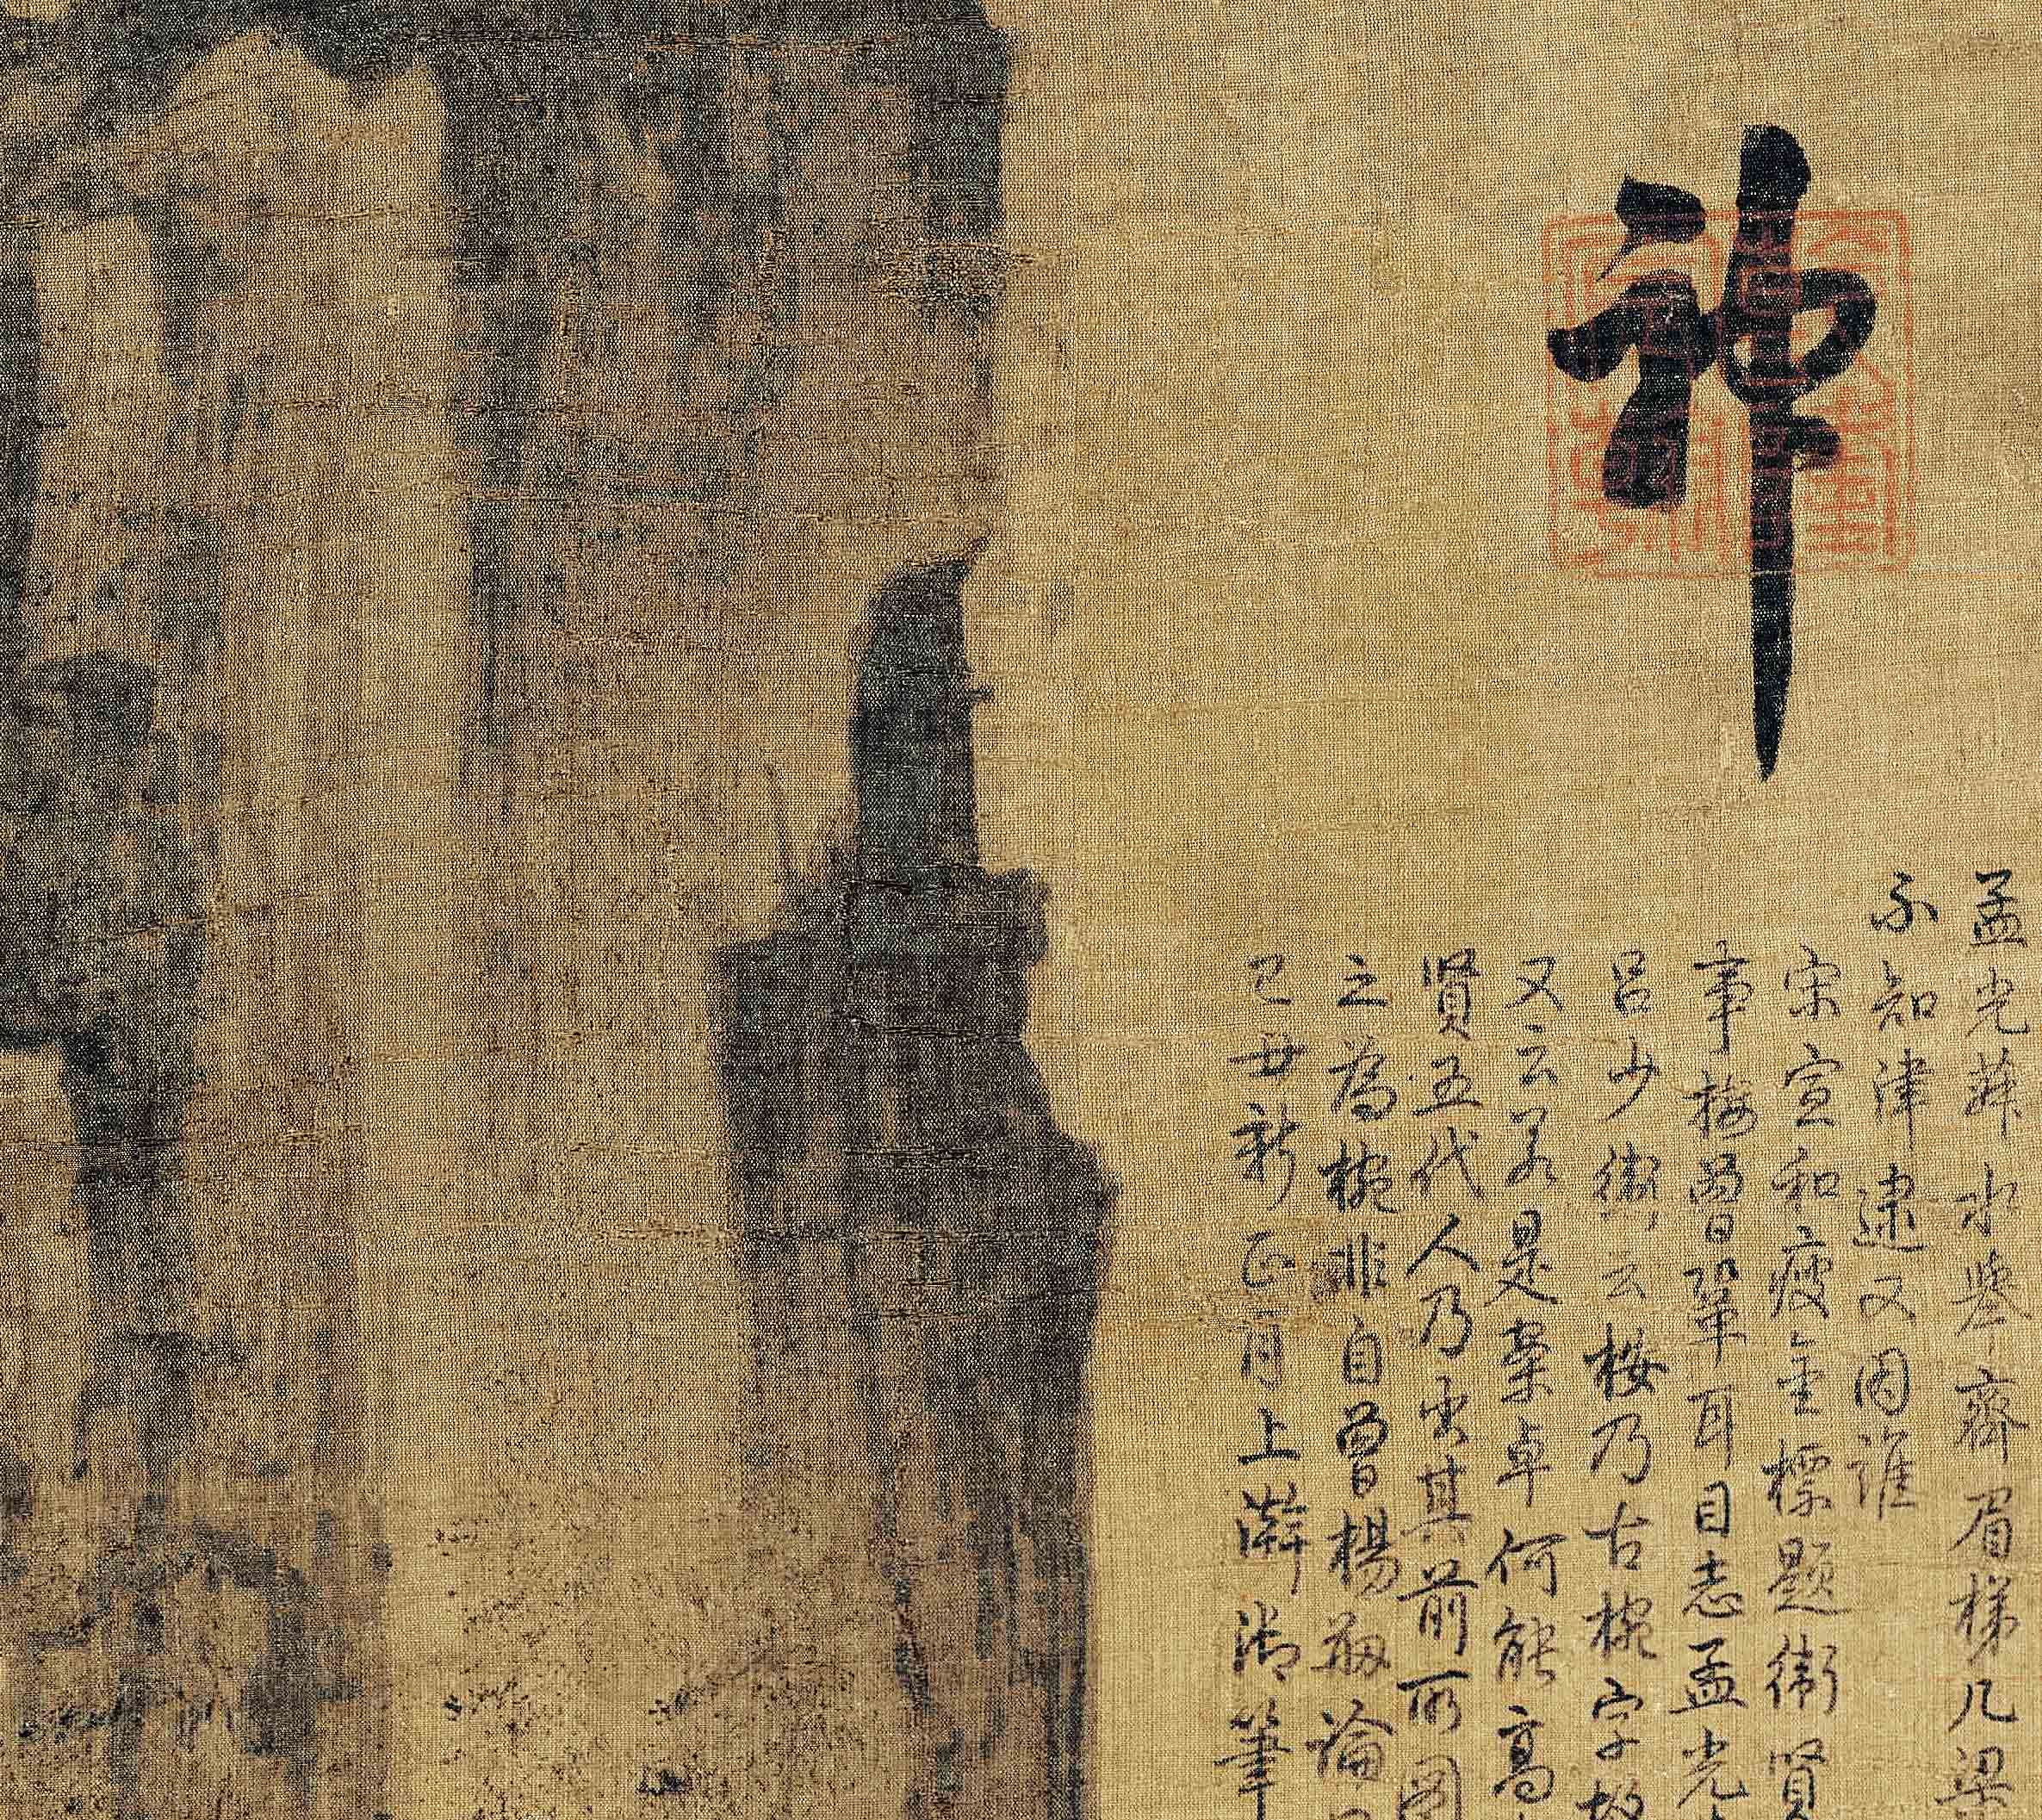 神
孟光莽水舉齊眉梯几梁
不知津逮又因誰
宋宣和瘦金標題衛賢
事按曾鞏耳目志孟光
呂少衛云桉乃古椀字故
又云若是案卓何能高
賢五代人乃出其前而圖
之為椀非自曾楊叔論
己丑新正月上澣御筆